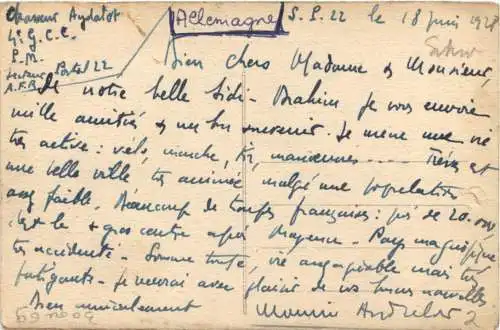 Chasseur Aydalot
4e G.C.C.
P.M.
Secteur Postal 22
A.F.R.
Allemagne
S.P. 22 le 18 juin 1928
Bien chers Madame & Monsieur,
De notre belle Sidi-Brahim je vous envoie
mille amitiés & un bon souvenir. Je mène une vie
très active : vélo, marche, tir, manœuvres .... Trèves est
une belle ville très animée malgré une population
assez faible. Beaucoup de troupes françaises : près de 20.000
C'est le + gros centre après Mayence - Pays magnifique
très accidenté - Somme toute vie agréable mais très
fatigante - Je recevrai avec plaisir de vos bonnes nouvelles
Bien amicalement